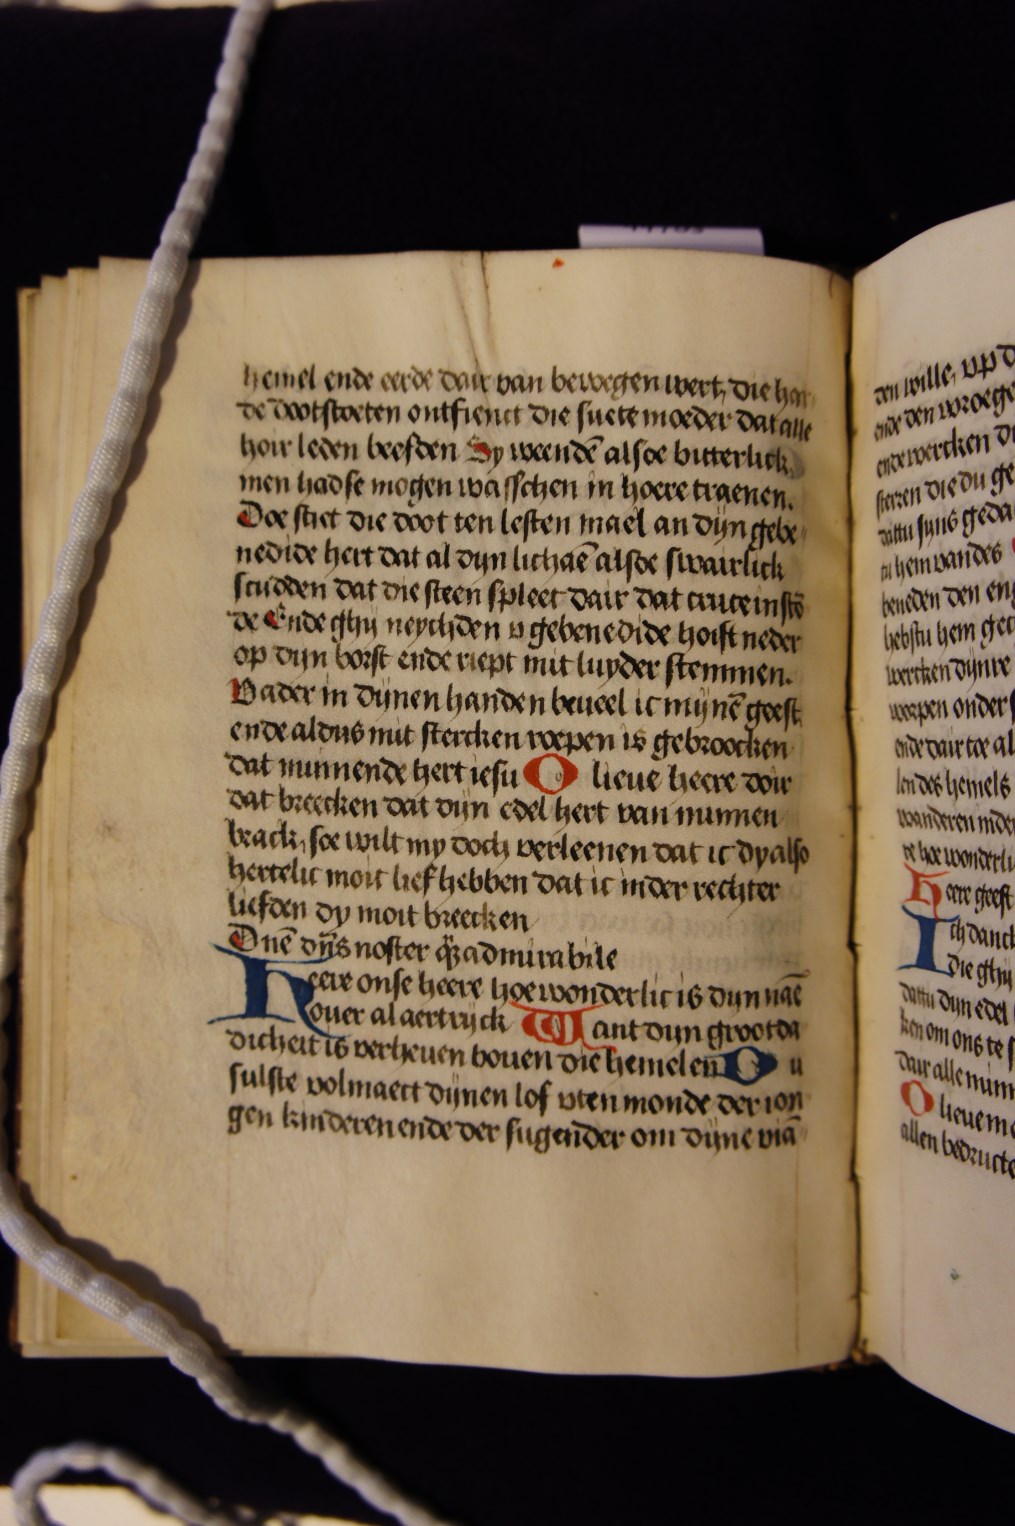 hemel ende eerde dair van bewegen wert, die har
de dootstoeten ontfienct die suete moeder dat alle
hoir leden beefden Sy weendē alsoe bitterlick
men hadse mogen wasschen in hoere traenen.
Doe stiet die doot ten lesten mael an dijn gebe
nedide hert dat al dyn lichaē alsoe swairlick
scudden dat die steen spleet dair dat cruce in stō
de Ende ghij neychden v gebenedide hoift neder
op dijn borst ende riept mit luyder stemmen.
Vader in dijnen handen beueel ic mijnē geest
ende aldus mit stercken roepen is gebroocken
dat minnende hert iesu O lieue heere doir
dat breecken dat dijn edel hert van minnen
brack, soe wilt my doch verleenen dat ic dy also
hertelic moit lief hebben dat ic inder rechter
liefden dy moit breecken
Dnē dn̄s noster q̄ȝ admirabile
Heere onse heere hoe wonderlic is dijn naē
ouer al aertrijck Want dijn grootda
dicheit is verheuen bouen die hemelen D u
sulste volmaect dijnen lof vten monde der ion
gen kinderen ende der sugender om dijne viā
den wille, vp d
ende den wroege
ende wercken di
sterren die du ge
dattu sijns geda
tu hem vandes
beneden den eng
hebstu hem gec
wercken dijnre
worpen onder s
ende dair toe al
len des hemels
wanderen inder
re hoe wonderli
Heere geest
Ich danck
die ghij
dattu dijn edel
ken om ons te s
dair alle minn
O lieue me
allen bedructe